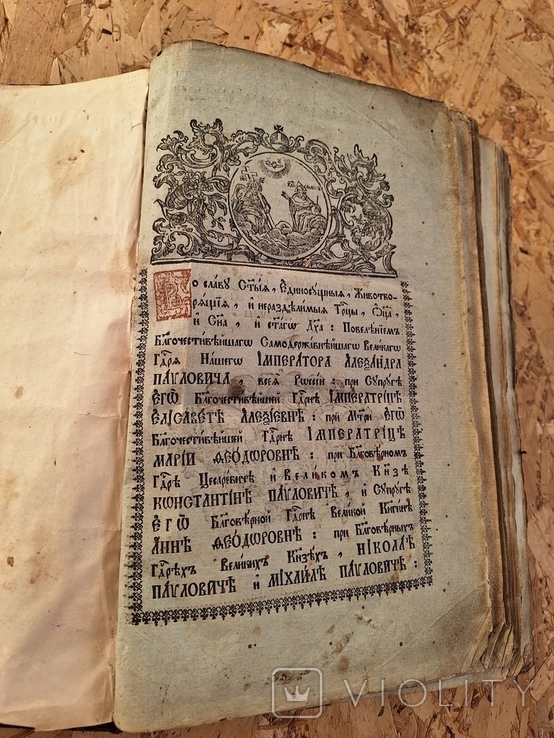 Во славу Ст҃ыѧ, Єдиносущныѧ, Животво-
рѧщїѧ, и нераздѣлимыѧ Трⷪ҇цы, Ѻц҃а,
и Сн҃а, и ст҃агѡ Дх҃а: Повелѣнїемъ
Бл҃гочестивѣйшагѡ Самодержавнѣйшагѡ Великагѡ
Гдⷭ҇рѧ Нашегѡ ІМПЕРАТОРА АЛЕѮАНДРА
ПАѴЛОВИЧА, всеѧ Рѡссїи: при Супругѣ
ЄГѠ Бл҃гочестивѣйшей Гдⷭ҇рнѣ ІМПЕРАТРІЦѢ
ЄЛІСАВЕТѢ АЛЕѮІЕВНѢ: при Мт҃ри ЄГѠ
Бл҃гочестивѣйшей Гдⷭ҇рнѣ ІМПЕРАТРІЦѢ
МАРІИ ѲЕѠДѠРОВНѢ: при Бл҃говѣрномъ
Гдⷭ҇рѣ Цесаревичѣ и Великомъ Кн҃зѣ
КѠНСТАНТІНѢ ПАѴЛОВИЧѢ, и Супругѣ
ЄГѠ Бл҃говѣрной Гдⷭ҇рнѣ Великой Кнѧгинѣ
АННѢ ѲЕѠДѠРОВНѢ: при Бл҃говѣрныхъ
Гдⷭ҇рѣхъ Великихъ Кнѧзѣхъ, НІКОЛАѢ
ПАѴЛОВИЧѢ и МІХАИЛѢ ПАѴЛОВИЧѢ:
VIOLITY